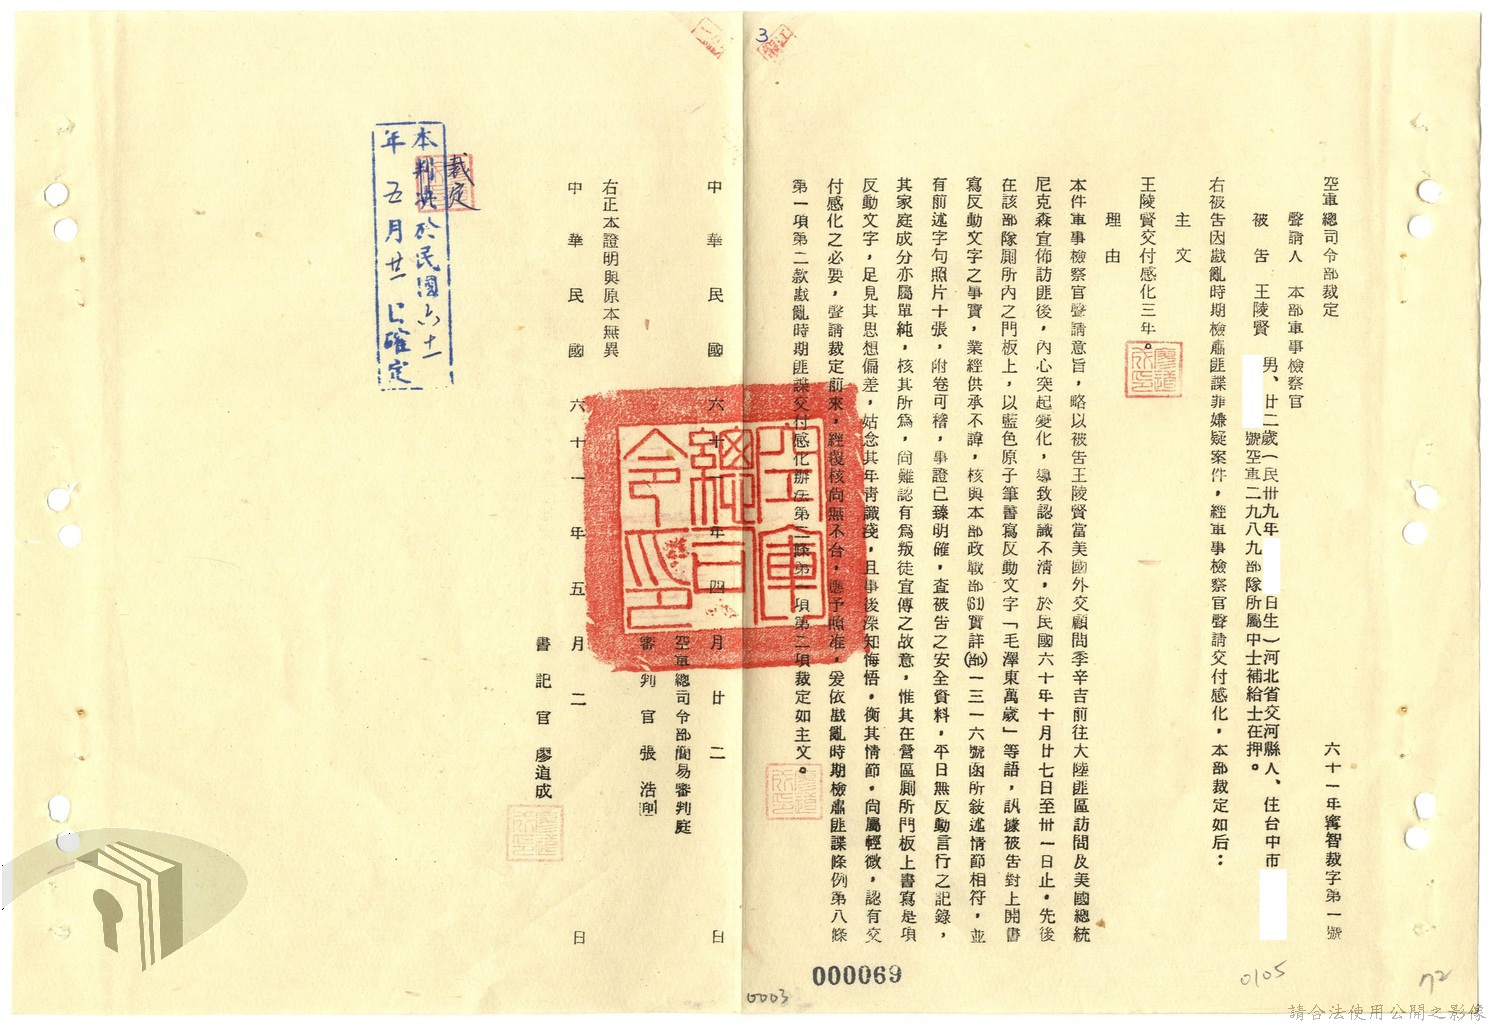 3
空軍總司令部裁定
六十一年審智裁字第一號
聲請人 本部軍事檢察官
被告 王陵賢 男、廿二歲(民卅九年
日生)河北省交河縣人、住台中市
號空軍二九八九部隊所屬中士補給士在押。
右被告因戡亂時期檢肅匪諜罪嫌疑案件,經軍事檢察官聲請交付感化,本部裁定如后:
主文
王陵賢交付感化三年。
理由
本件軍事檢察官聲請意旨,略以被告王陵賢當美國外交顧問季辛吉前往大陸匪區訪問及美國總統
尼克森宣佈訪匪後,內心突起變化,導致認識不清,於民國六十年十月廿七日至卅一日止。先後
在該部隊厠所內之門板上,以藍色原子筆書寫反動文字「毛澤東萬歲」等語,訊據被告對上開書
寫反動文字之事實,業經供承不諱,核與本部政戰部(61)實詳(部)一三一六號函所敍述情節相符,並
有前述字句照片十張,附卷可稽,事證已臻明確,查被告之安全資料,平日無反動言行之記錄,
其家庭成分亦屬單純,核其所為,尚難認有為叛徒宣傳之故意,惟其在營區厠所門板上書寫是項
反動文字,足見其思想偏差,姑念其年青識淺,且事後深知悔悟,衡其情節,尚屬輕微,認有交
付感化之必要,聲請裁定前來,經覆核尚無不合,應予照准,爰依戡亂時期檢肅匪諜條例第八條
第一項第二款戡亂時期匪諜交付感化辦法第三條第一項第二項裁定如主文。
中華民國六十一年四月廿二日
空軍總司令部簡易審判庭
審判官 張浩 印
右正本證明與原本無異
中華民國六十一年五月二日
書記官 廖道成
裁定
本判決於民國六十一
年五月廿二日確定
000069
0003
0105
72
請合法使用公開之影像